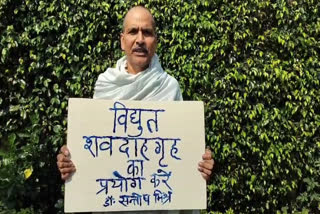 विद्युत
शवदाह गृह
का
प्रयोग करें
डॉ. सन्तोष मिश्रा